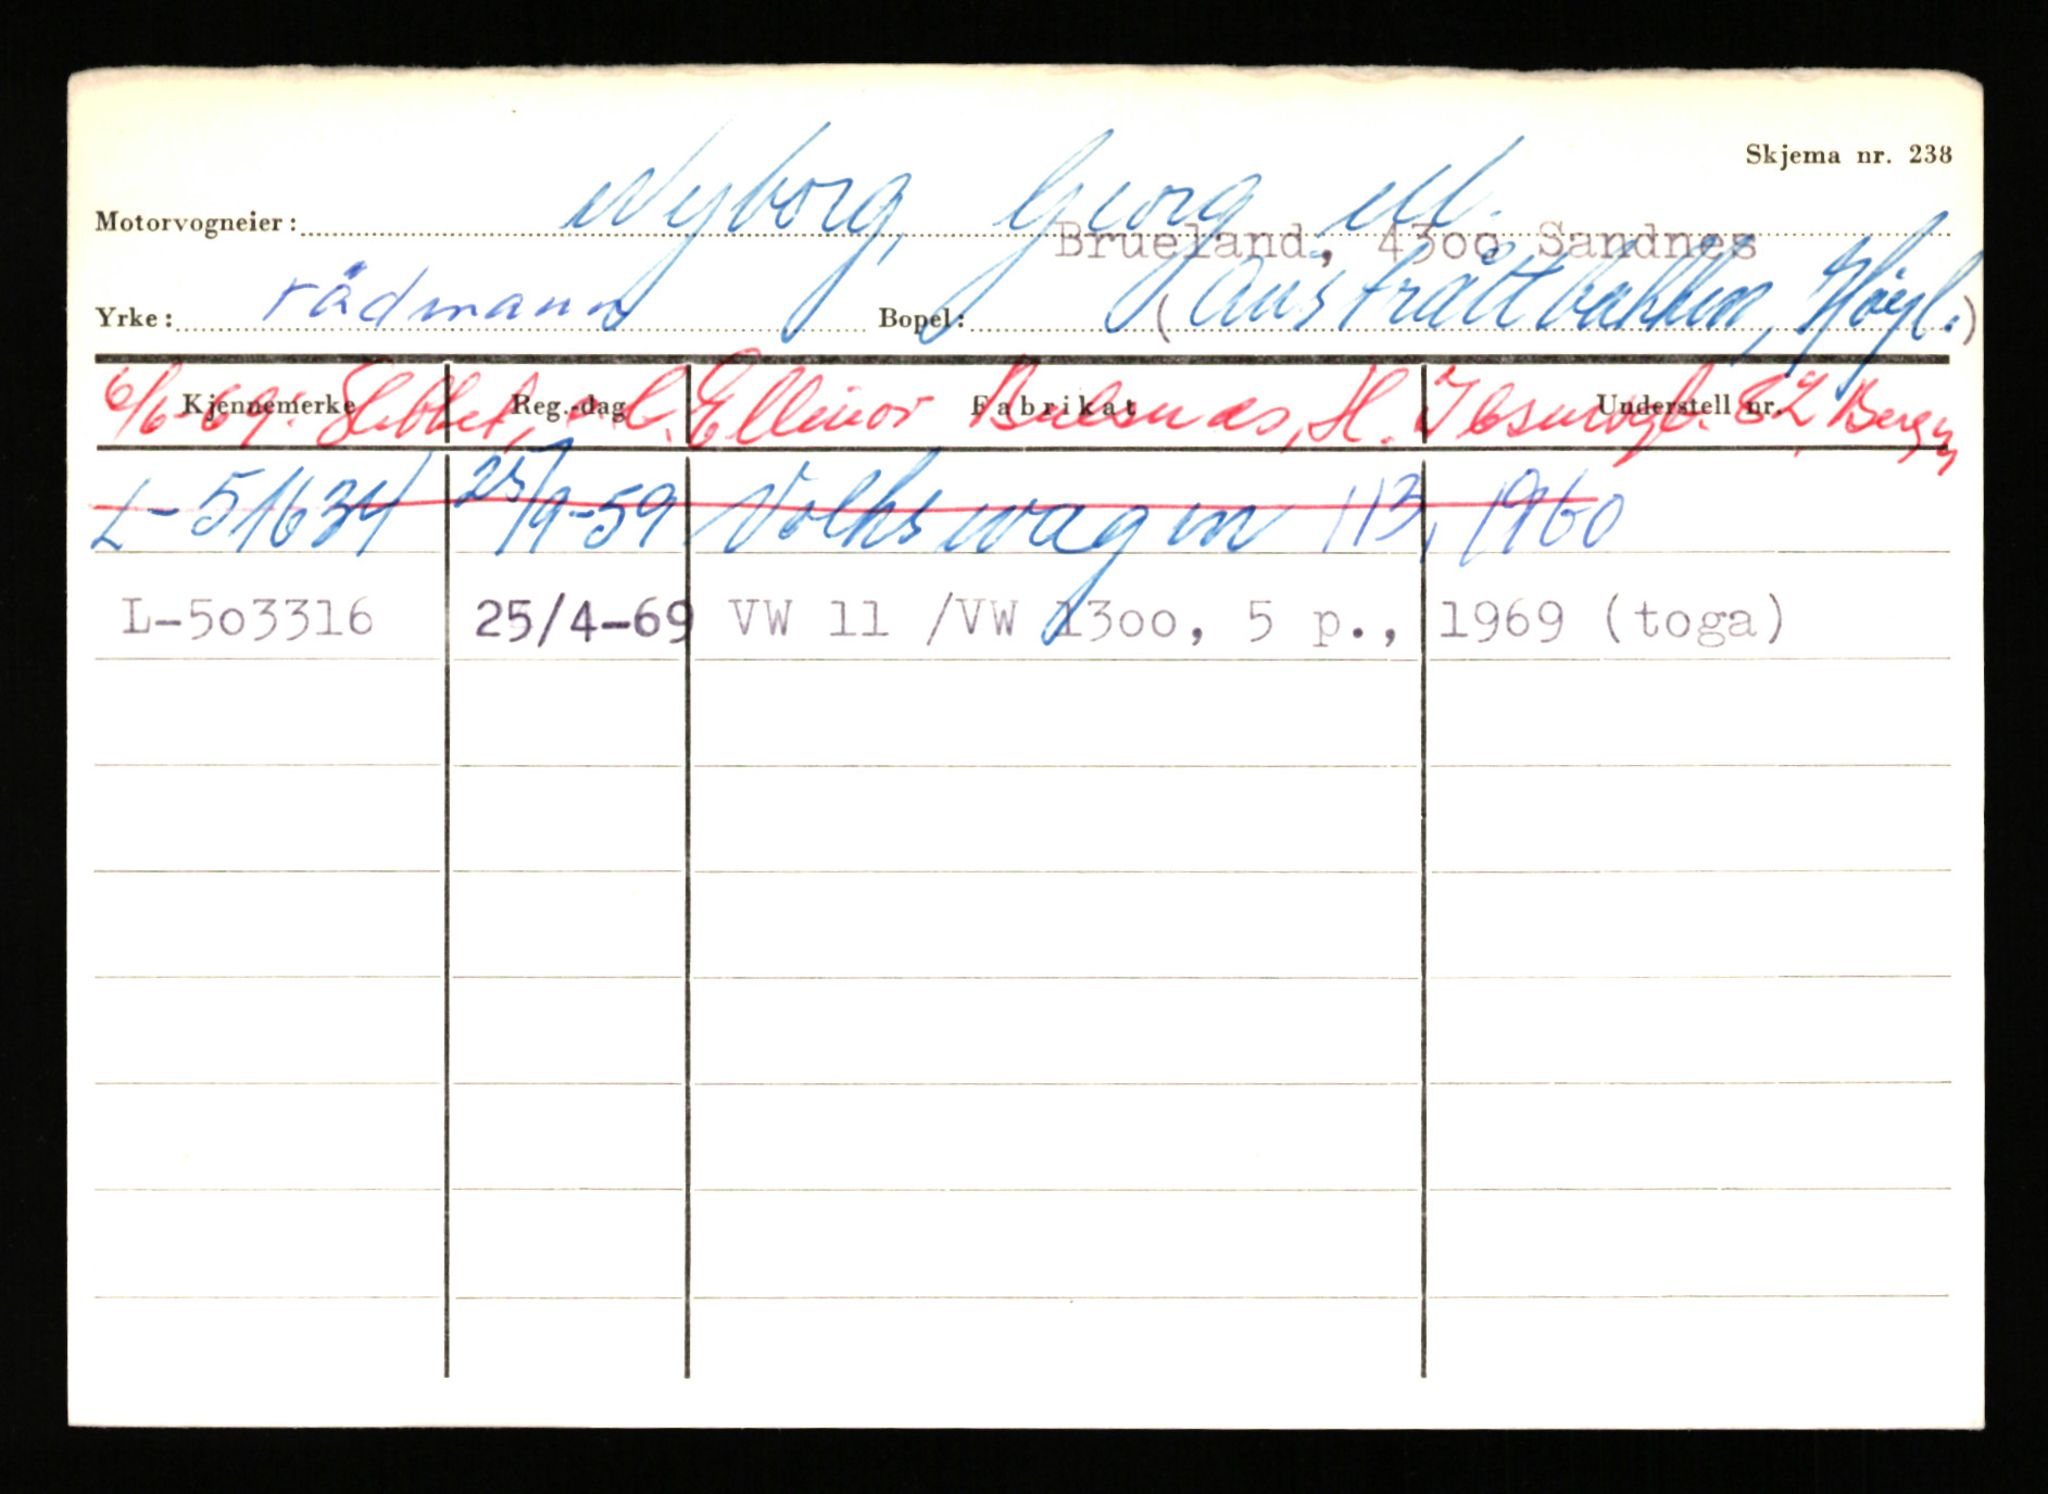 Skjema nr. 238
Motorvogneier: Nyborg, Georg M.
Brueland, 4300 Sandnes
Yrke: rådmann Bopel: (Austråttbakken, Høyl.)
6/6-69: Slettet, Ellinor H. 82 Bergen
Kjennemerke Reg.-dag Fabrikat Understell nr.
L-51634 25/9-59 Volkswagen 113, 1960
L-503316 25/4-69 VW 11 /VW 1300, 5 p., 1969 (toga)